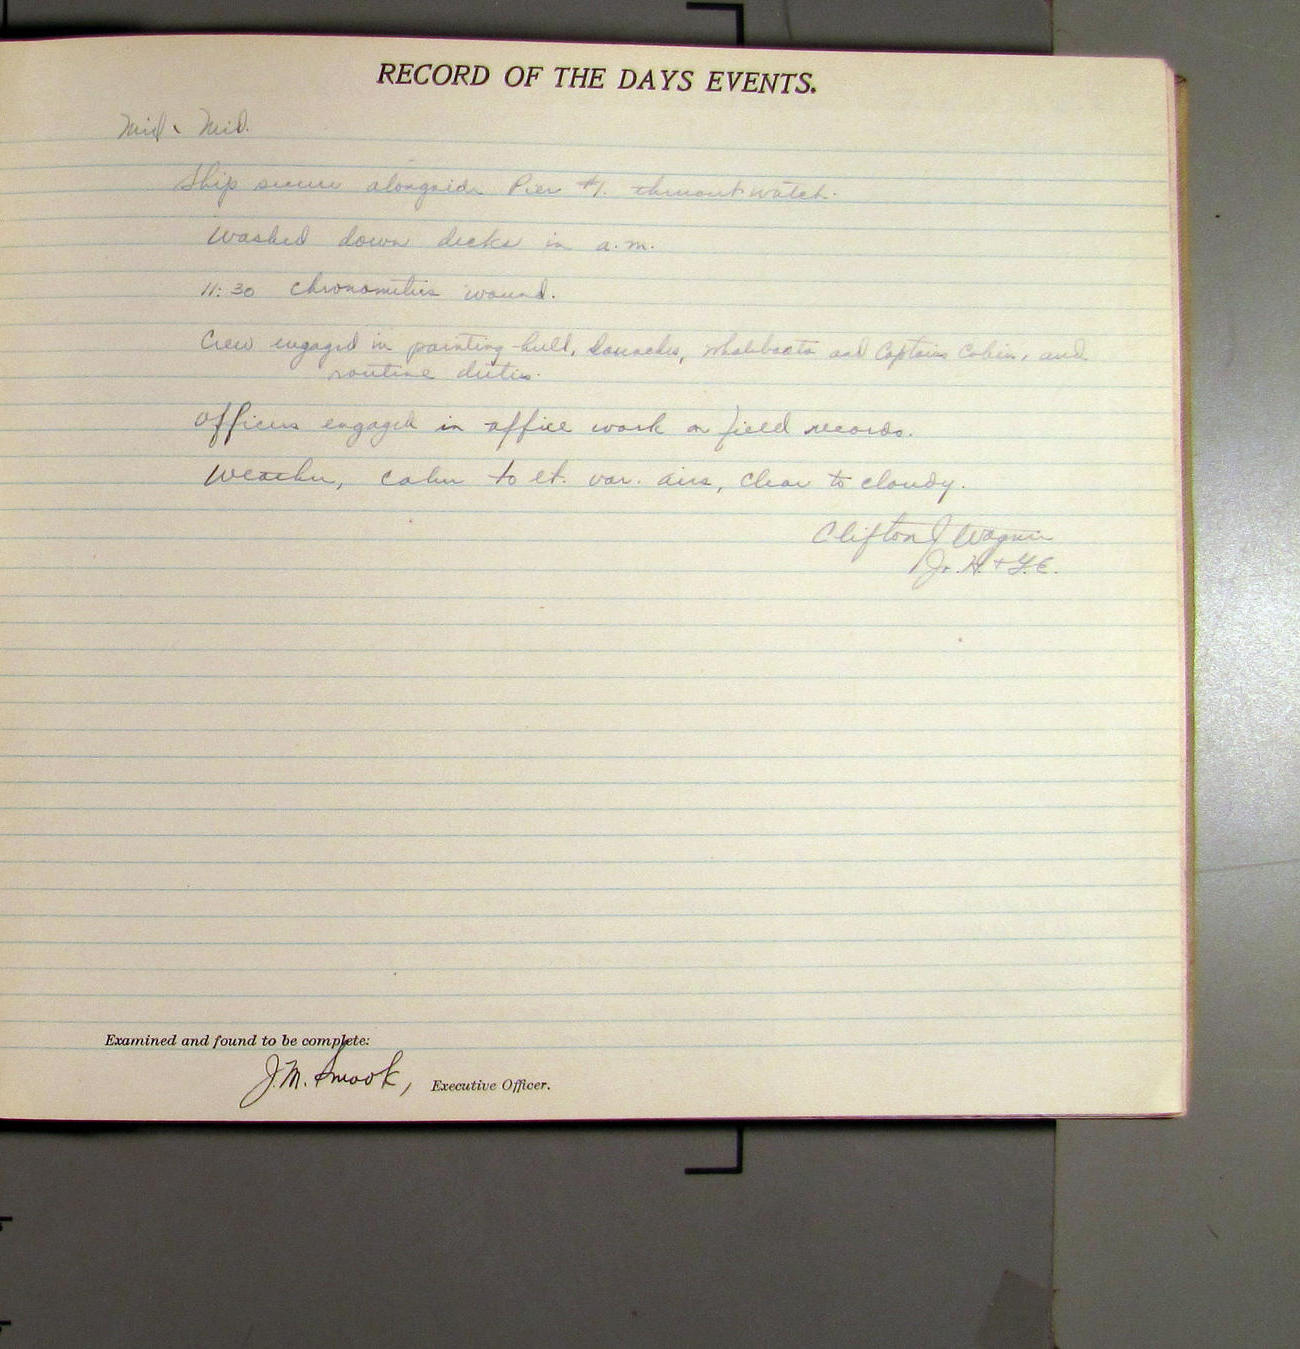 RECORD OF THE DAYS EVENTS.
Mid - Mid.
Ship secure alongside Pier #1. watch.
Washed down decks in a.m.
11:30 chronometers wound.
Crew engaged in painting hull, launches, whaleboats and Captains Cabin, and
routine duties.
Officers engaged in office work on field records.
Weather, calm to lt. var. airs, clear to cloudy.
Clifton J Wagner
Jr. H. + G. E.
Examined and found to be complete:
J. M. Smook, Executive Officer.